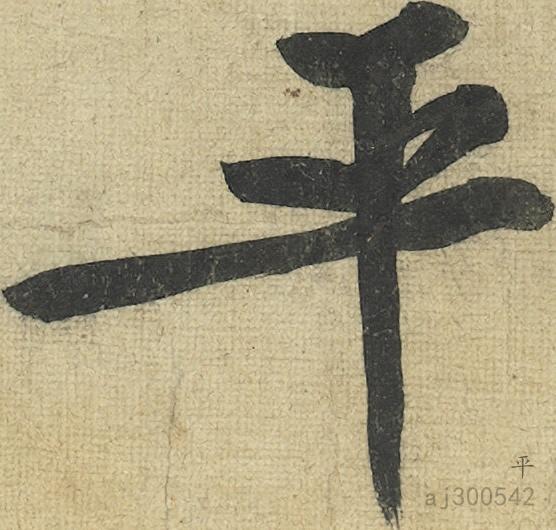 平
平
aj300542